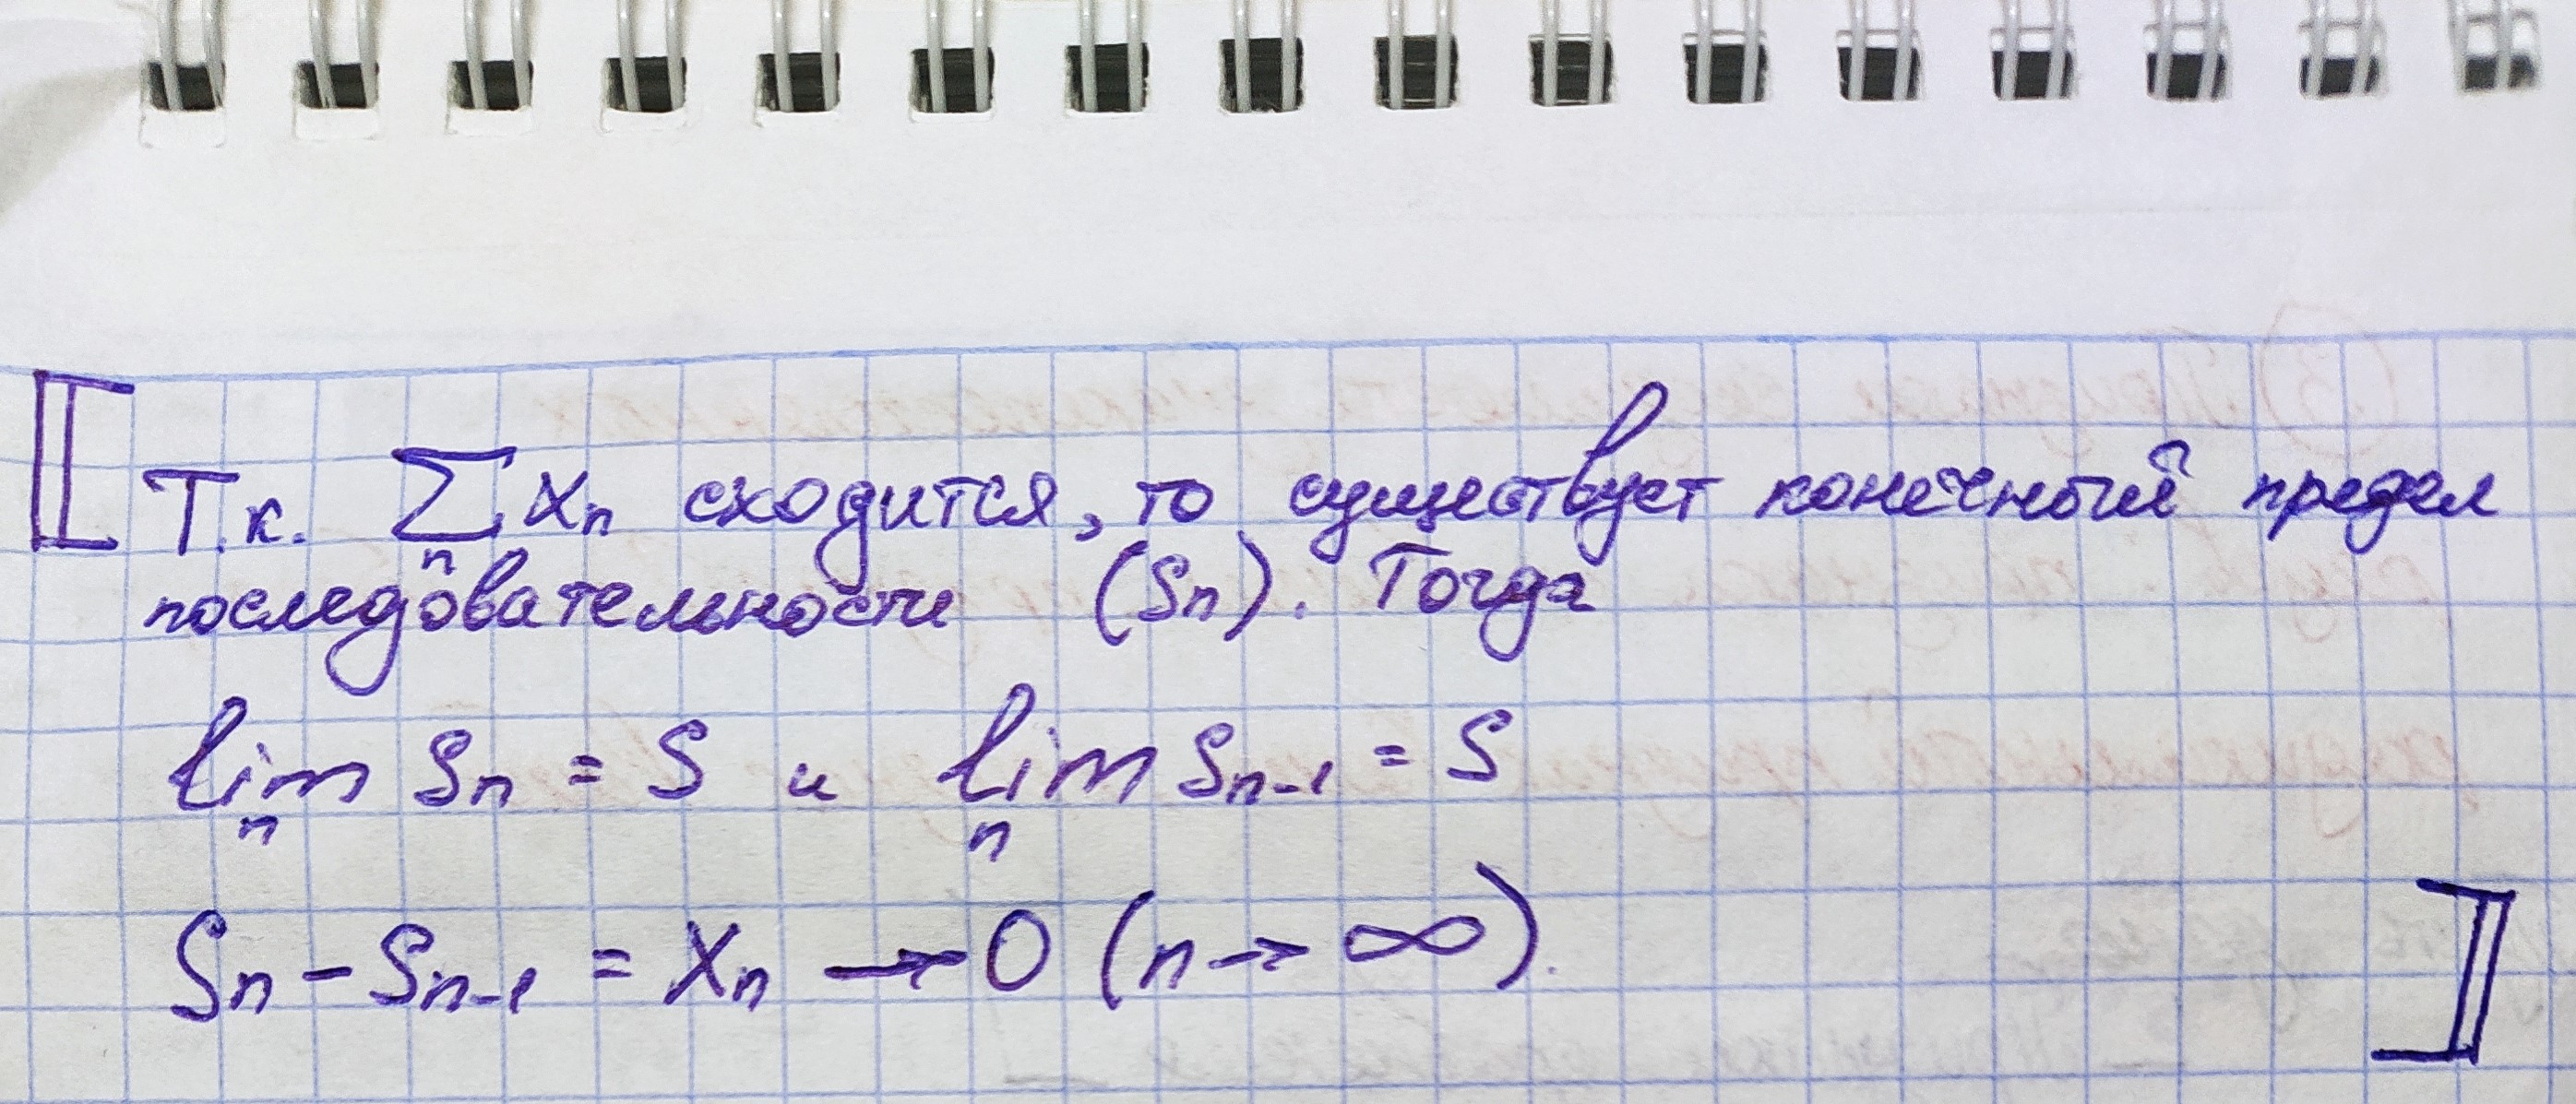 ⟦ Т.к. ∑ₙ xₙ сходится, то существует конечный предел
последовательности (Sₙ). Тогда
limₙ Sₙ = S и limₙ Sₙ₋₁ = S
Sₙ − Sₙ₋₁ = xₙ → 0 (n → ∞). ⟧